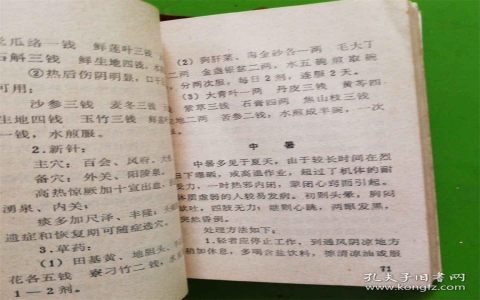 瓜络一钱 鲜莲叶三钱
石斛三钱 鲜生地四钱
②热后伤阴明显，口干
可用：
沙参三钱 麦冬三钱
生地四钱 玉竹三钱 鲜
一钱，水煎服。
2．新针：
主穴：百会、风府、大
备穴：外关、阳陵泉
高热惊厥加十宣出血
涌泉、内关；
痰多加尺泽、丰隆
遗症和恢复期可随症选穴
3．草药：
(1) 田基黄、地胆头
花各五钱 寮刁竹二钱
1—2剂。
(2) 狗肝菜、海金砂各一两 毛大丁
二两 金盏银盆二两 水五碗煎取碗
分两次服，每日2剂，连服2天。
(3) 大青叶一两 丹皮三钱 黄芩四
紫草三钱 石膏四两 焦山枝三钱
二两 苦参二钱，水煎成半碗，一次
中暑
中暑多见于夏天，由于较长时间在烈
日下曝晒，或高温作业，超过了机体的耐
受力，一时热邪内闭，蒙闭心窍而引起。
体质虚弱的人较易发病。初则头晕，胸闷
四肢无力；继则心跳，两眼发黑，
突然昏倒。
处理方法如下：
1．轻者应停止工作，到通风阴凉地方
稍加休息，多喝含盐饮料，擦清凉油或服
71
孔夫子旧书网
www.kongfz.com